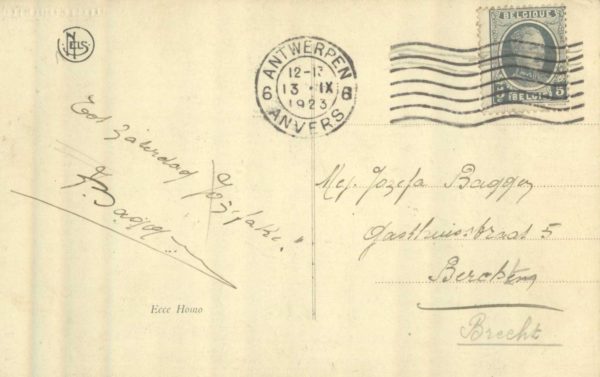 NELS
ANTWERPEN
6 12-1 6
13 IX
1923
ANVERS
BELGIQUE
5 5
BELGIË
Tot Zaterdag
Mej. Jozefa Baggen
Gasthuisstraat 5
Brecht
Ecce Homo